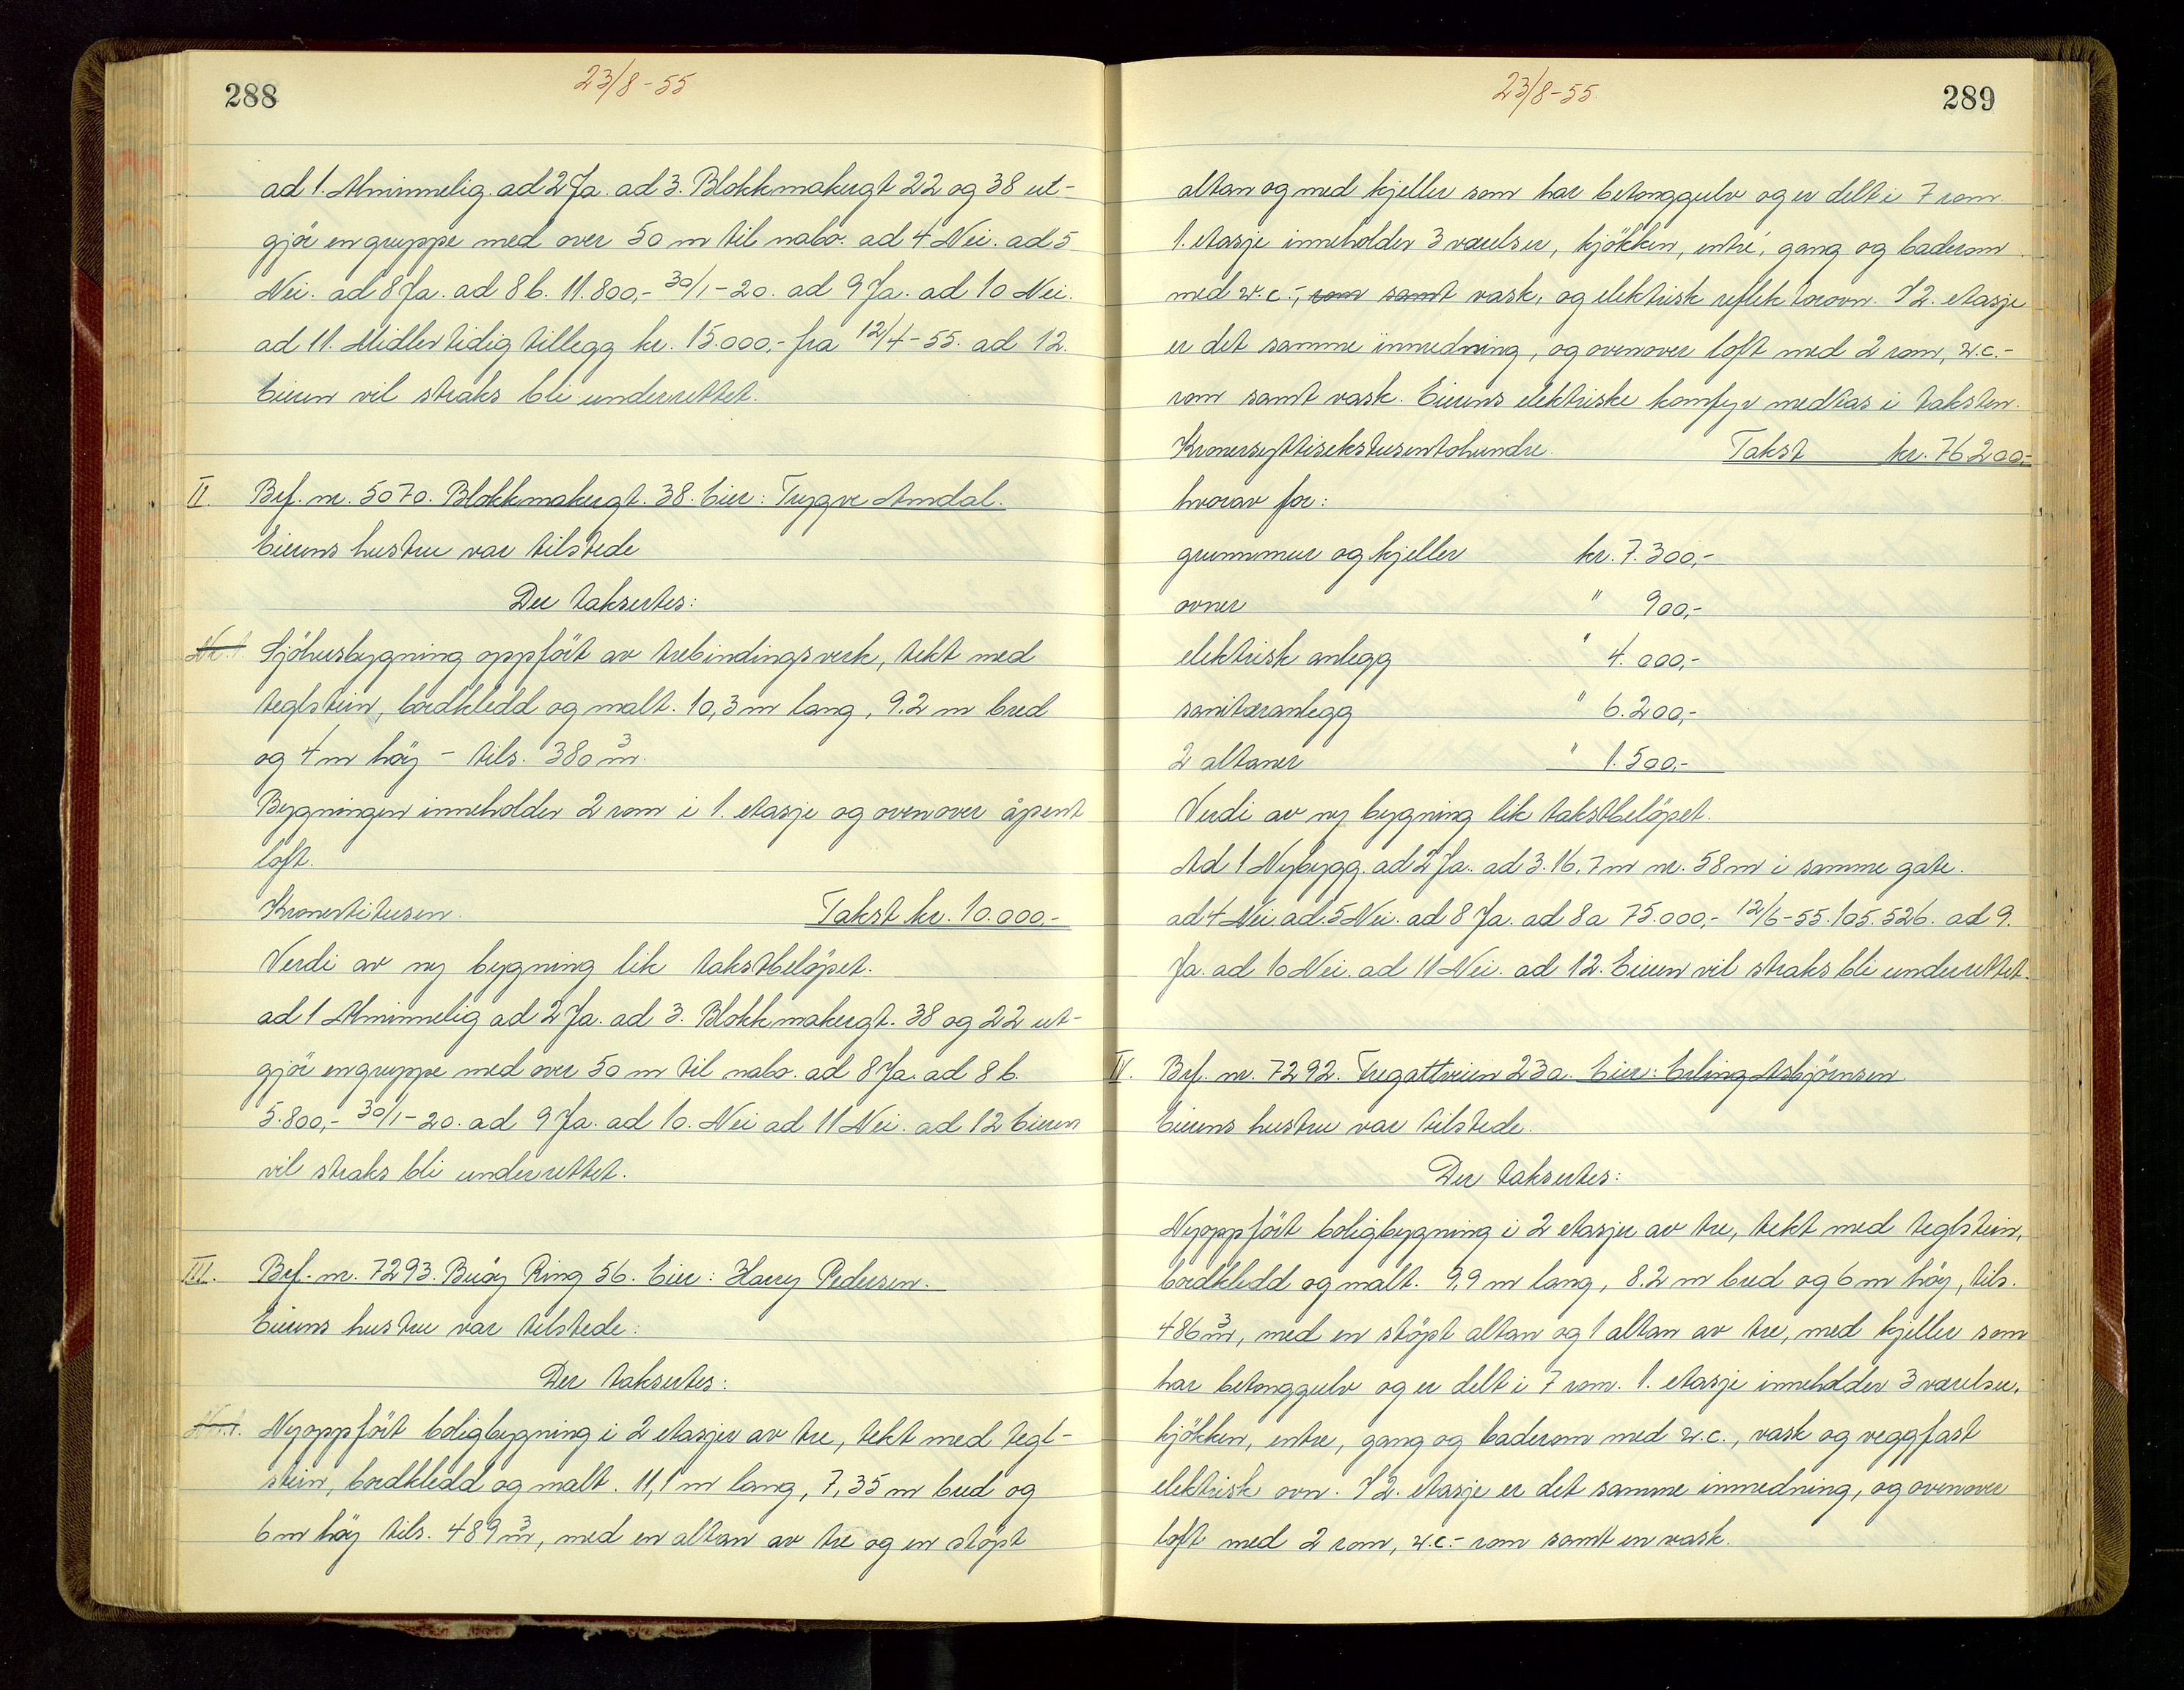 288
23/8-55
ad 1. Alminnelig. ad 2 Ja. ad 3. Blokkmakergt 22 og 38 ut-
gjør en gruppe med over 50 m til nabo. ad 4 Nei. ad 5
Nei. ad 8 Ja. ad 8 b. 11.800,- 30/1-20. ad 9 Ja. ad 10 Nei.
ad 11. Midlertidig tillegg kr. 15.000,- fra 12/4-55. ad 12.
Eieren vil straks bli underrettet.
II. Brf. nr. 5070. Blokkmakergt. 38. Eier: Trygve Amdal.
Eierens hustru var tilstede
Der takseres:
Nr. 1. Sjöhusbygning oppfört av trebindingsverk, tekt med
teglstein, bordkledd og malt. 10,3 m lang, 9.2 m bred
og 4 m höy - tils. 380 m³.
Bygningen inneholder 2 rom i 1. etasje og ovenover åpent
loft.
Kronertitusen. Takst kr. 10.000,-
Verdi av ny bygning lik takstbelöpet.
ad 1 Alminnelig ad 2 Ja. ad 3. Blokkmakergt. 38 og 22 ut-
gjör en gruppe med over 50 m til nabo. ad 8 Ja. ad 8 b.
5.800,- 30/1-20. ad 9 Ja. ad 10. Nei ad 11 Nei. ad 12 Eieren
vil straks bli underrettet.
III. Brf. nr. 7293. Buöy Ring 56. Eier: Harry Pedersen.
Eierens hustru var tilstede:
Der taksertes:
Nr. 1. Nyoppfört boligbygning i 2 etasjer av tre, tekt med tegl-
stein, bordkledd og malt. 11,1 m lang, 7,35 m bred og
6 m höy tils. 489 m³, med en altan av tre og en stöpt
23/8-55.
289
altan og med kjeller som har betonggulv og er delt i 7 rom.
1. etasje inneholder 3 værelser, kjökken, entré, gang og baderom
med w.c.-, rom samt vask, og elektrisk reflektorovn. I 2. etasje
er det samme innredning, og ovenover loft med 2 rom, w.c.-
rom samt vask. Eierens elektriske komfyr medtas i taksten.
Kronersyttisekstusentohundre. Takst kr. 76200,-
hvorav for:
grunnmur og kjeller kr. 7.300,-
ovner " 900,-
elektrisk anlegg " 4.000,-
sanitæranlegg " 6.200,-
2 altaner " 1.500,-
Verdi av ny bygning lik takstbelöpet.
Ad 1 Nybygg. ad 2 Ja. ad 3. 16.7 m nr. 58 m i samme gate.
ad 4 Nei. ad. 5 Nei. ad 8 Ja. ad 8a 75.000,- 12/6-55. 105.526. ad 9.
Ja. ad 10 Nei. ad 11 Nei. ad 12. Eieren vil straks bli underrettet.
IV. Brf. nr. 7292. Fregattveien 23a. Eier: Erling Asbjörnsen
Eierens hustru var tilstede.
Der taksertes:
Nyoppfört boligbygning i 2 etasjer av tre, tekt med teglstein,
bordkledd og malt. 9,9 m lang, 8.2 m bred og 6 m höy, tils.
486 m³, med en stöpt altan og 1 altan av tre, med kjeller som
har betonggulv og er delt i 7 rom. 1. etasje inneholder 3 værelser,
kjökken, entre, gang og baderom med w.c., vask og veggfast
elektrisk ovn. I 2. etasje er det samme innredning, og ovenover
loft med 2 rom, w.c.- rom samt en vask.